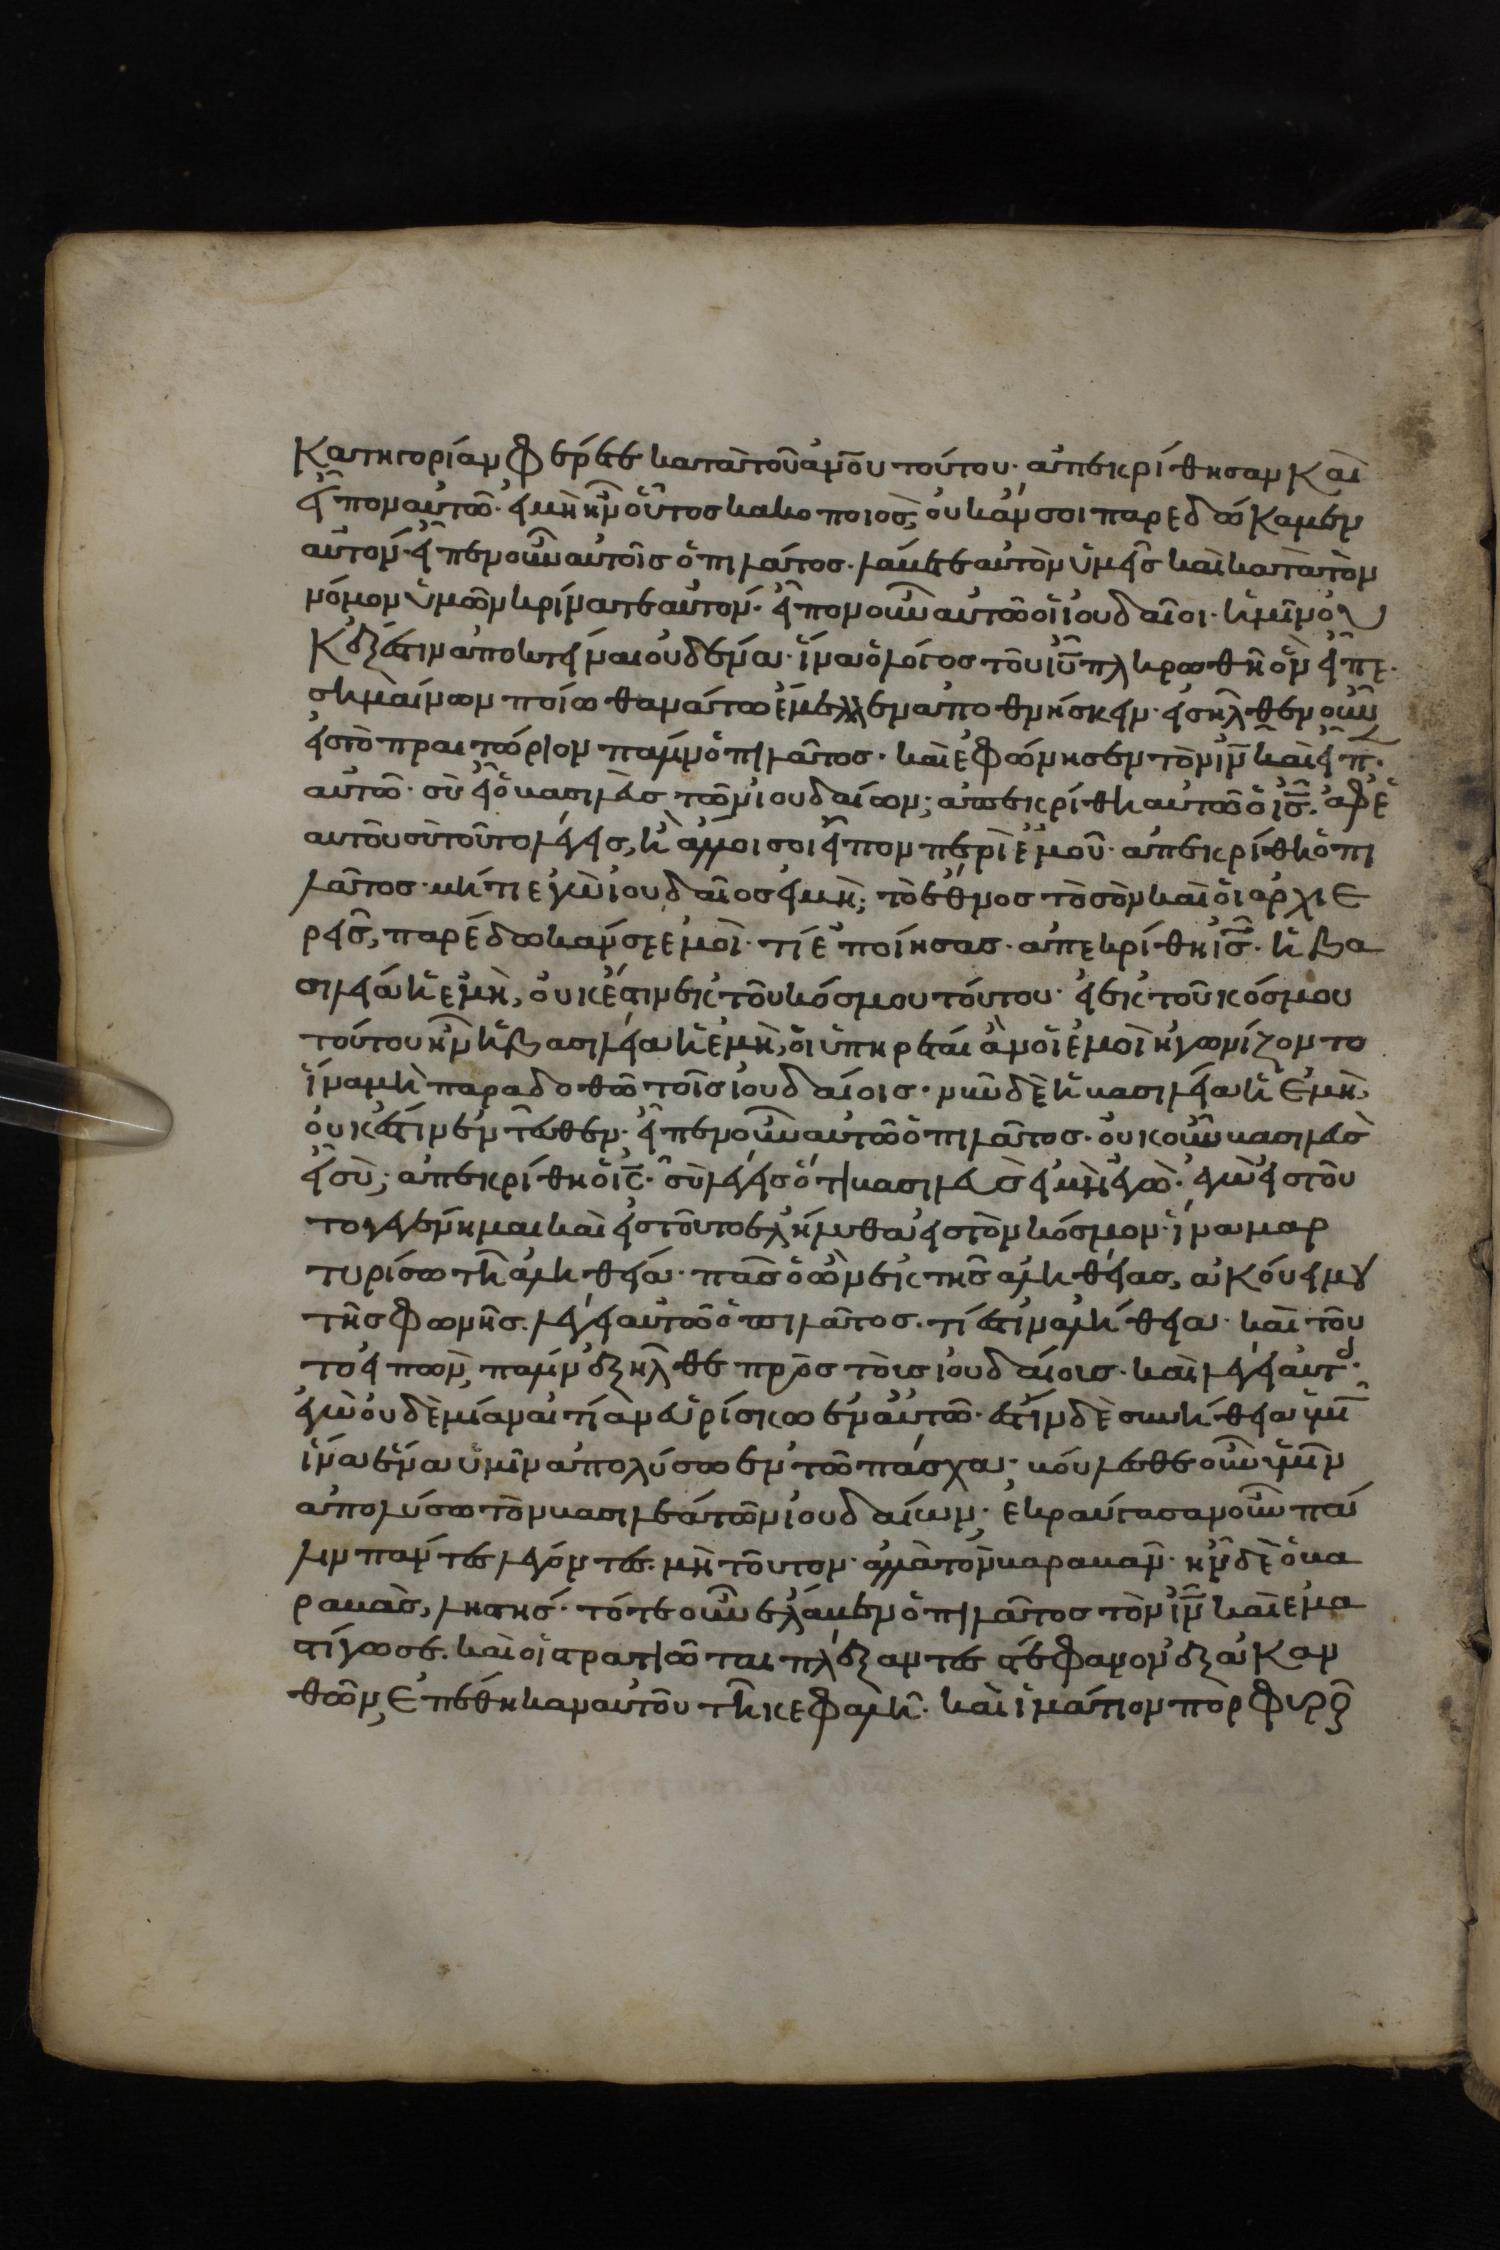 κατηγορίαν φέρετε κατὰ τοῦ ἀνοῦ τούτου· ἀπεκρίθησαν καὶ
εἶπον αὐτῶ· εἰ μὴ ἦν οὗτος κακοποιὸς, οὐκ ἄν σοι παρεδώκαμεν
αὐτόν· εἶπεν οὖν αὐτοῖς ὁ πιλάτος· λάβετε αὐτὸν ὑμεῖς καὶ κατὰ τὸν
νόμον ὑμῶν κρίνατε αὐτόν· εἶπον οὖν αὐτῶ οἱ ἰουδαῖοι· ἡμῖν οὐ
κ ἔξεστιν ἀποκτεῖναι οὐδένα· ἵνα ὁ λόγος τοῦ ιυ πληρωθῆ ὃν εἶπε·
σημαίνων ποίω θανάτω ἔμελλεν ἀποθνήσκειν· εἰσῆλθεν οὖν
εἰς τὸ πραιτώριον πάλιν ὁ πιλᾶτος· καὶ ἐφώνησεν τὸν ιν καὶ εἶπ·
αὐτῶ· σὺ εἶ ὁ βασιλεὺς τῶν ἰουδαίων; ἀπεκρίθη αὐτῶ ὁ ις· ἀφ' ἑ
αυτοῦ σὺ τοῦτο λέγεις, ἢ ἄλλοι σοι εἶπον περὶ ἐμοῦ· ἀπεκρίθη ὁ πι
λᾶτος· μήτι ἐγὼ ἰουδαῖος εἰμὴ; τὸ ἔθνος τὸ σὸν καὶ οἱ ἀρχιε
ρεῖς, παρέδωκάν σε ἐμοὶ· τί ἐποίησας· ἀπεκρίθη ις· ἡ βα
σιλεία ἡ ἐμὴ, οὐκ ἔστιν ἐκ τοῦ κόσμου τούτου· εἰ ἐκ τοῦ κόσμου
τούτου ἦν ἡ βασιλεία ἡ ἐμὴ, οἱ ὑπηρέται ἂν οἱ ἐμοὶ ἠγωνίζοντο
ἵνα μὴ παραδοθῶ τοῖς ἰουδαίοις· νῦν δὲ ἡ βασιλεία ἡ ἐμὴ,
οὐκ ἔστιν ἐντεῦθεν· εἶπεν οὖν αὐτῶ ὁ πιλᾶτος· οὐκοῦν βασιλεὺς
εἶ σὺ; ἀπεκρίθη ὁ ις· σὺ λέγεις ὅτι βασιλεὺς εἰμὶ ἐγὼ· ἐγὼ εἰς τοῦ
το γεγέννημαι καὶ εἰς τοῦτο ἐλήλυθα εἰς τὸν κόσμον· ἵνα μαρ
τυρίσω τῆ ἀληθεία· πᾶς ὁ ὢν ἐκ τῆς ἀληθείας, ἀκούει μου
τῆς φωνῆς· λέγει αὐτῶ ὁ πιλᾶτος· τί ἐστὶν ἀλήθεια· καὶ τοῦ
το εἰπὼν, πάλιν ἐξῆλθε πρὸς τοὺς ἰουδαίοις· καὶ λέγει αὐτ·
ἐγὼ οὐδὲ μίαν αἰτίαν εὑρίσκω ἐν αὐτῶ· ἔστιν δὲ συνήθεια ὑμῖ
ἵνα ἕνα ὑμῖν ἀπολύσω ἐν τῶ πάσχα· βούλεσθε οὖν ὑμῖν
ἀπολύσω τὸν βασιλέα τῶν ἰουδαίων· ἐκραύγασαν οὖν πά
λιν πάντες λέγοντες· μὴ τοῦτον· ἀλλὰ τὸν βαραβᾶν· ἦν δὲ ὁ βα
ραβὰς, ληστής· τότε οὖν ἔλαβεν ὁ πιλᾶτος τὸν ιν καὶ ἐμα
στίγωσε· καὶ οἱ στρατιῶται πλέξαντες στέφανον ἐξ ἀκαν
θῶν, ἐπέθηκαν αὐτοῦ τῆ κεφαλῆ· καὶ ἱμάτιον πορφυρ